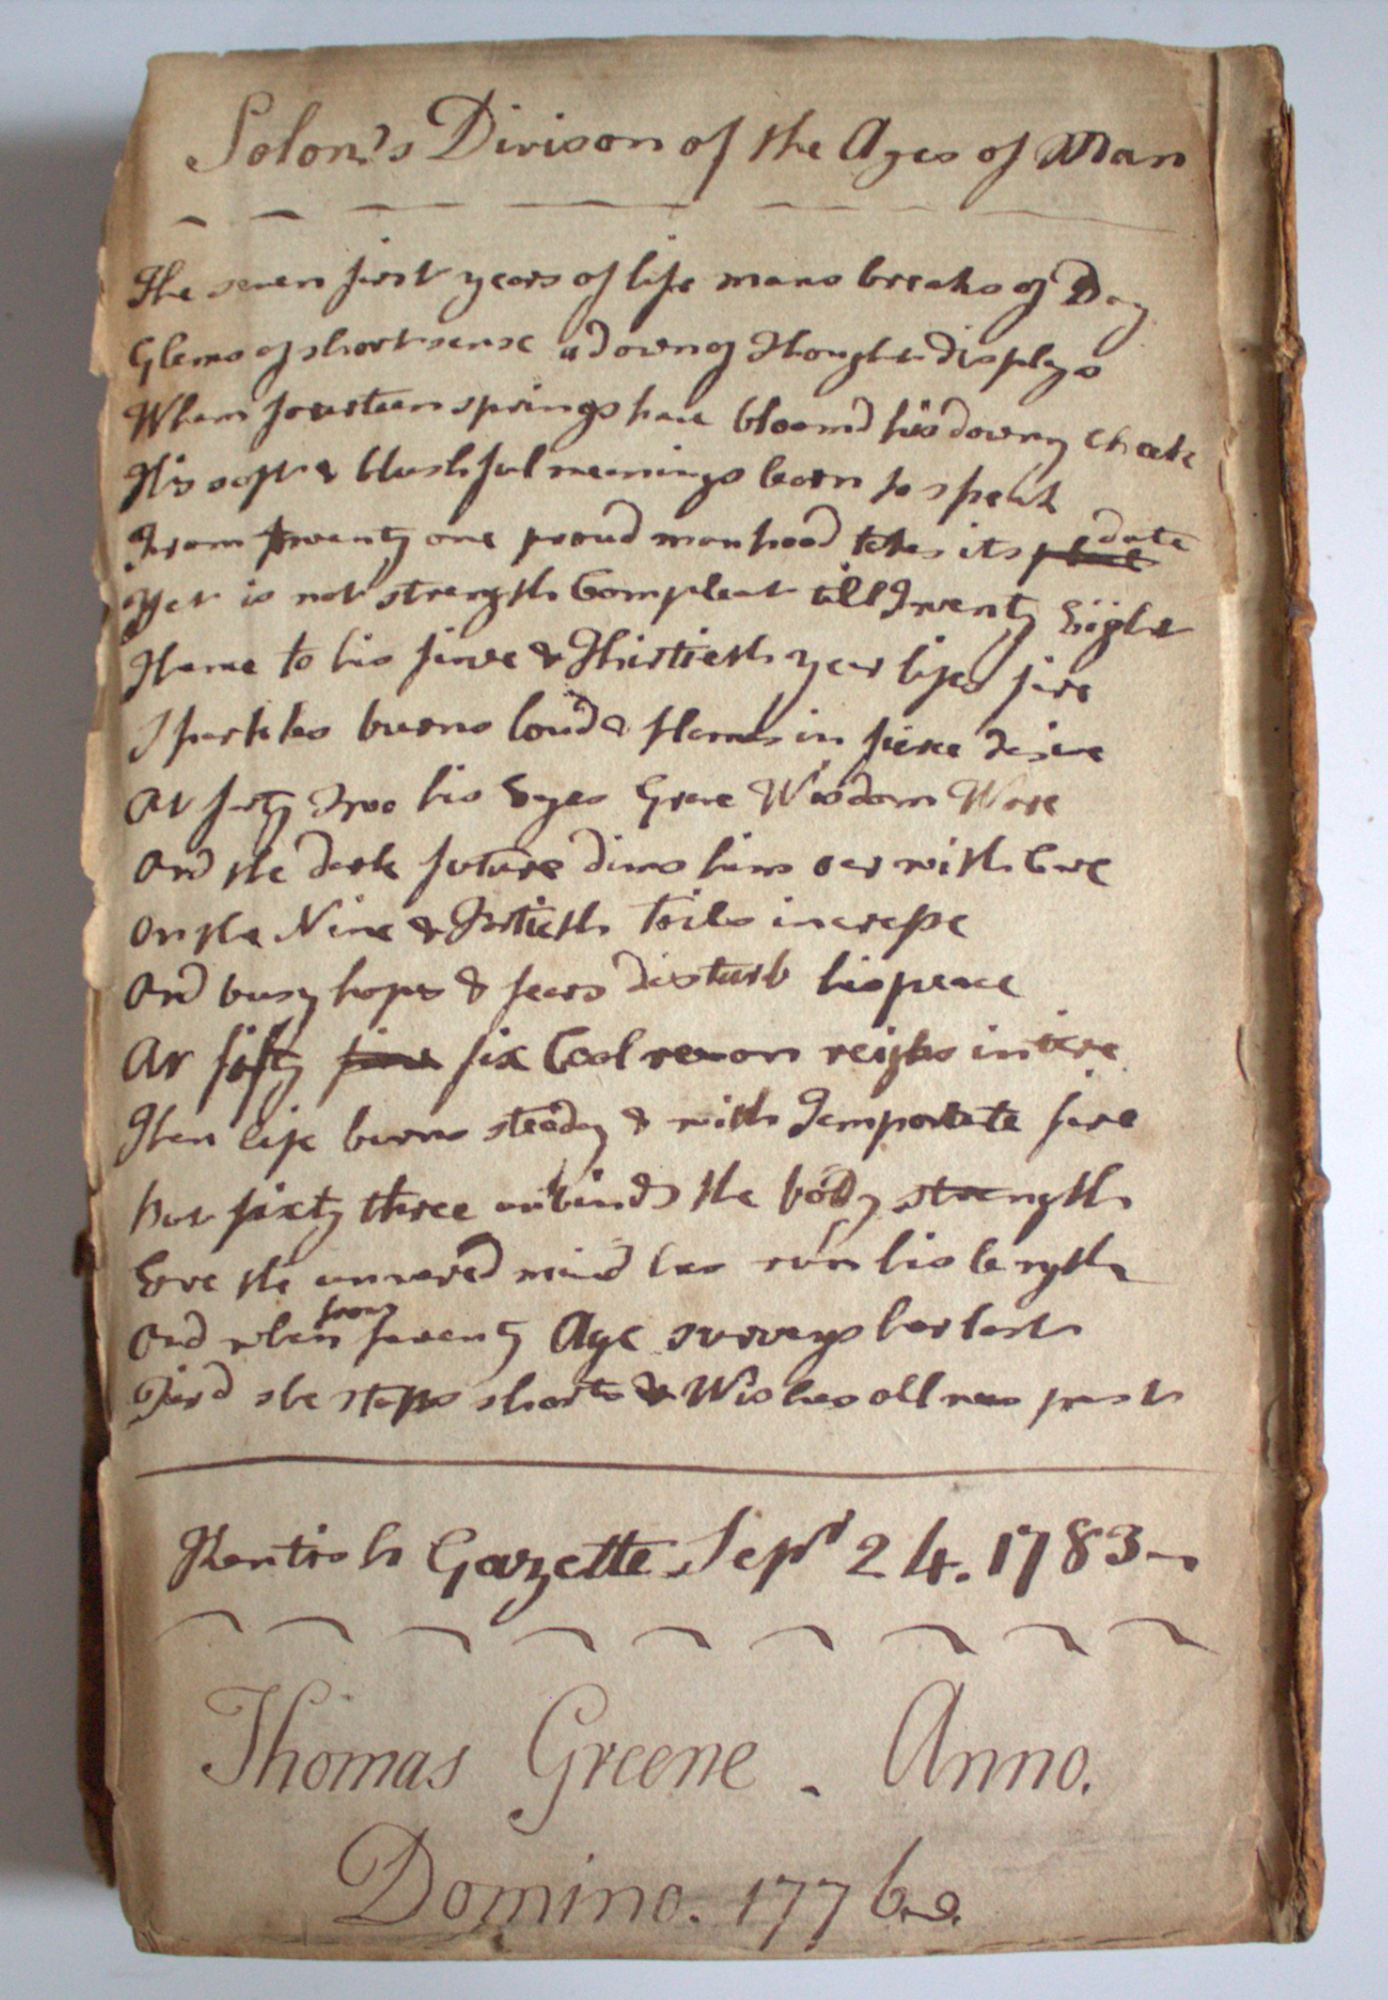 Solon's Divison of the Ages of Man
The seven first years of life mans breaks of Day
Glems of short sense a down of Thought displays
When fourteen springs have bloomd his downy cheek
His soft & blushful meanings learn to speak
From twenty one proud manhood takes its place date
Yet is not strength Compleat till Twenty Eight
Thence to his five & Thirtieth year lifes fire
Sparkles burns loud & flames in fierce desire
At forty Two his Eyes Grave Wisdom Wore
And the dark future dims him oer with Care
On the Nine & Fortieth toils increase
And busy hopes & fears disturb his peace
At fifty six Cool reason reighs intire
Then life burns steady & with Temperate fire
But sixty three unbinds the body strength
Ere the unwearèd mind has run his length
And when from seventy Age surveys her last
Tird she stops short & Wishes all was past
Kentish Gazette Sepr 24. 1783
Thomas Greene. Anno.
Domino. 1776